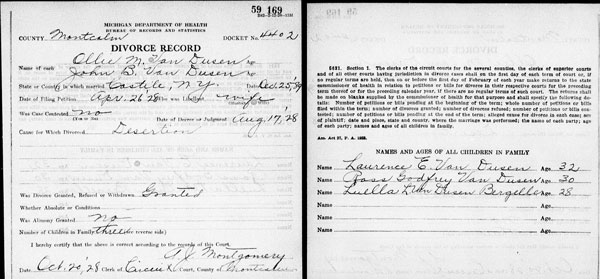 59 169
MICHIGAN DEPARTMENT OF HEALTH
BUREAU OF RECORDS AND STATISTICS
COUNTY Montcalm
DOCKET No. 4402
DIVORCE RECORD
Name of each
Ollie M. Van Dusen
John B. Van Dusen
State or Country in which married Castile, N.Y. Date Oct. 25, '94
Date of Filing Petition Apr. 21 '28 wife
Was Case Contested no
Date of Divorce or Judgment Aug 17, '28
Cause for Which Divorced Desertion
Was Divorce Granted, Refused or Withdrawn Granted
Whether Absolute or Conditions
Was Alimony Granted no
Number of Children in Family three (on reverse side)
I hereby certify that the above is correct according to the records of this Court.
A. J. Montgomery
Date Oct. 20, '28 Clerk of Circuit Court, County of Montcalm
59 169
5431. Section 1. The clerks of the circuit courts for the several counties, the clerks of superior courts
and of all other courts having jurisdiction in divorce cases shall on the first day of each term of court or, if
no regular terms are held, then on or before the first day of February of each year make returns to the state
commissioner of health in relation to petitions or bills for divorce in their respective courts for the preceding
term thereof or for the preceding calendar year, if there are no regular terms of such court. The returns shall
be made on blanks supplied by the commissioner of health for that purpose and shall specify the following de-
tails: Number of petitions or bills pending at the beginning of the term; whole number of petitions or bills
filed within the term; number of divorces granted; number of divorces refused; number of petitions or bills con-
tested; number of petitions or bills pending at the end of the term; alleged cause for divorce in each case; sex
of plaintiff; date and place, state and county, where the marriage was performed; the name of each party; age
of each party; names and ages of all children in family.
NAMES AND AGES OF ALL CHILDREN IN FAMILY
Name Laurence E. Van Dusen Age 32
Name Ross Godfrey Van Dusen Age 30
Name Luella Van Dusen Bergelle Age 28
Name Age
Name Age
Name Age